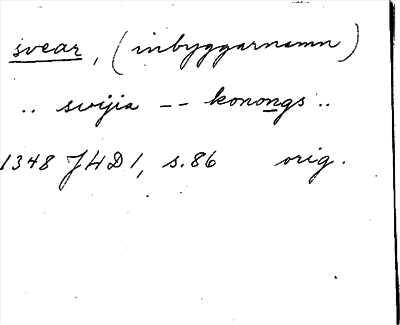 svear, (inbyggarnamn)
.. svijia -- konongs ..
1348 JHD 1, s. 86 orig.